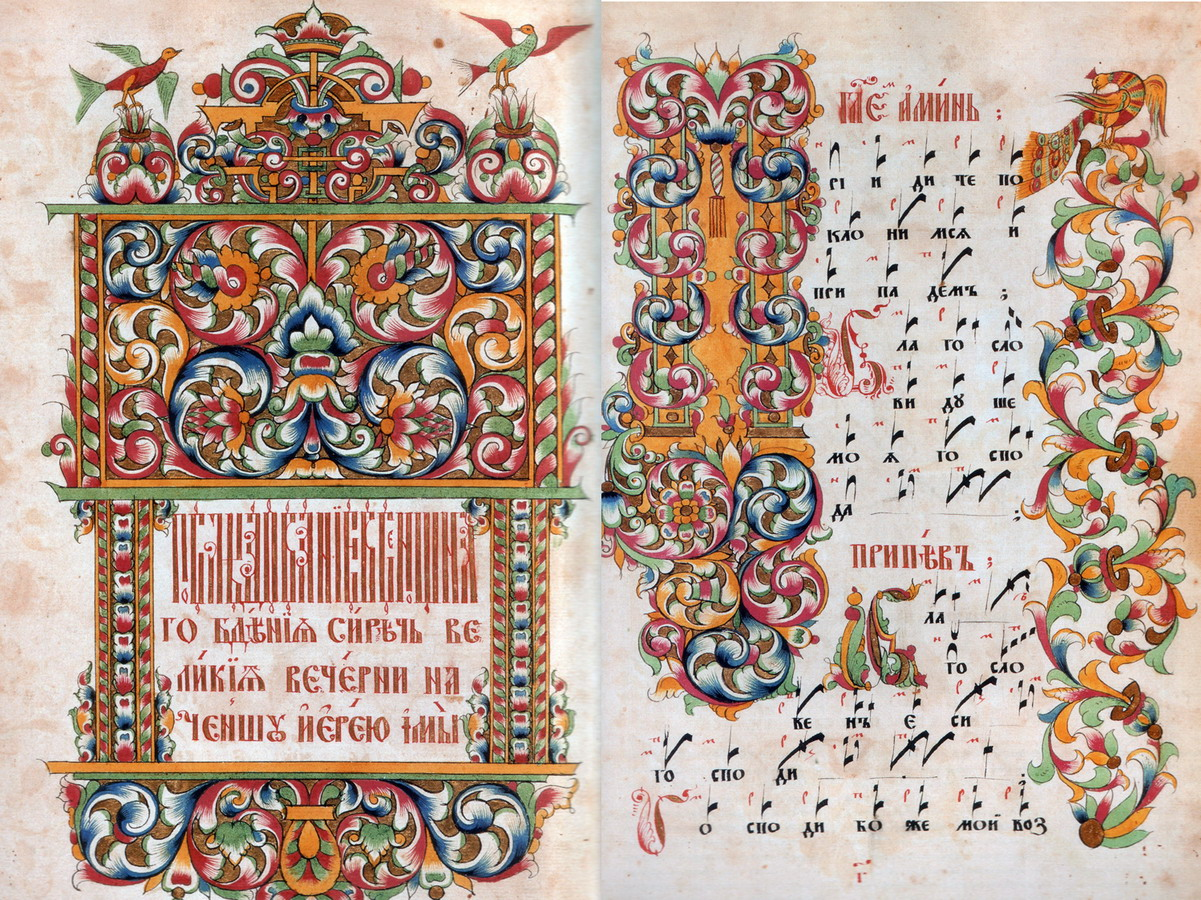 го бдѣ́нїѧ си́рѣчь ве
ли́кїѧ вече́рни на
че́ншꙋ іере́ю імы̀
глеⷨ ами́нь ;
П рі и ди те по
кло ни мсѧ и
при па демъ ;
Б ла го сло
ви дꙋ ше
мо ѧ го спо
да ;
припѣвъ ;
Б ла
го сло
ве нъ е си
го спо ди ;
Г о спо ди бо же мой воз
г